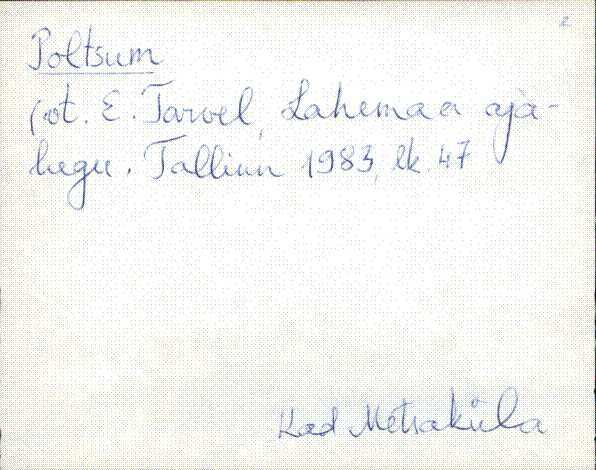 2
Poltsum
(vt. E. Tarvel, Lahemaa aja-
lugu. Tallinn 1983, lk. 47
Kad Metsaküla